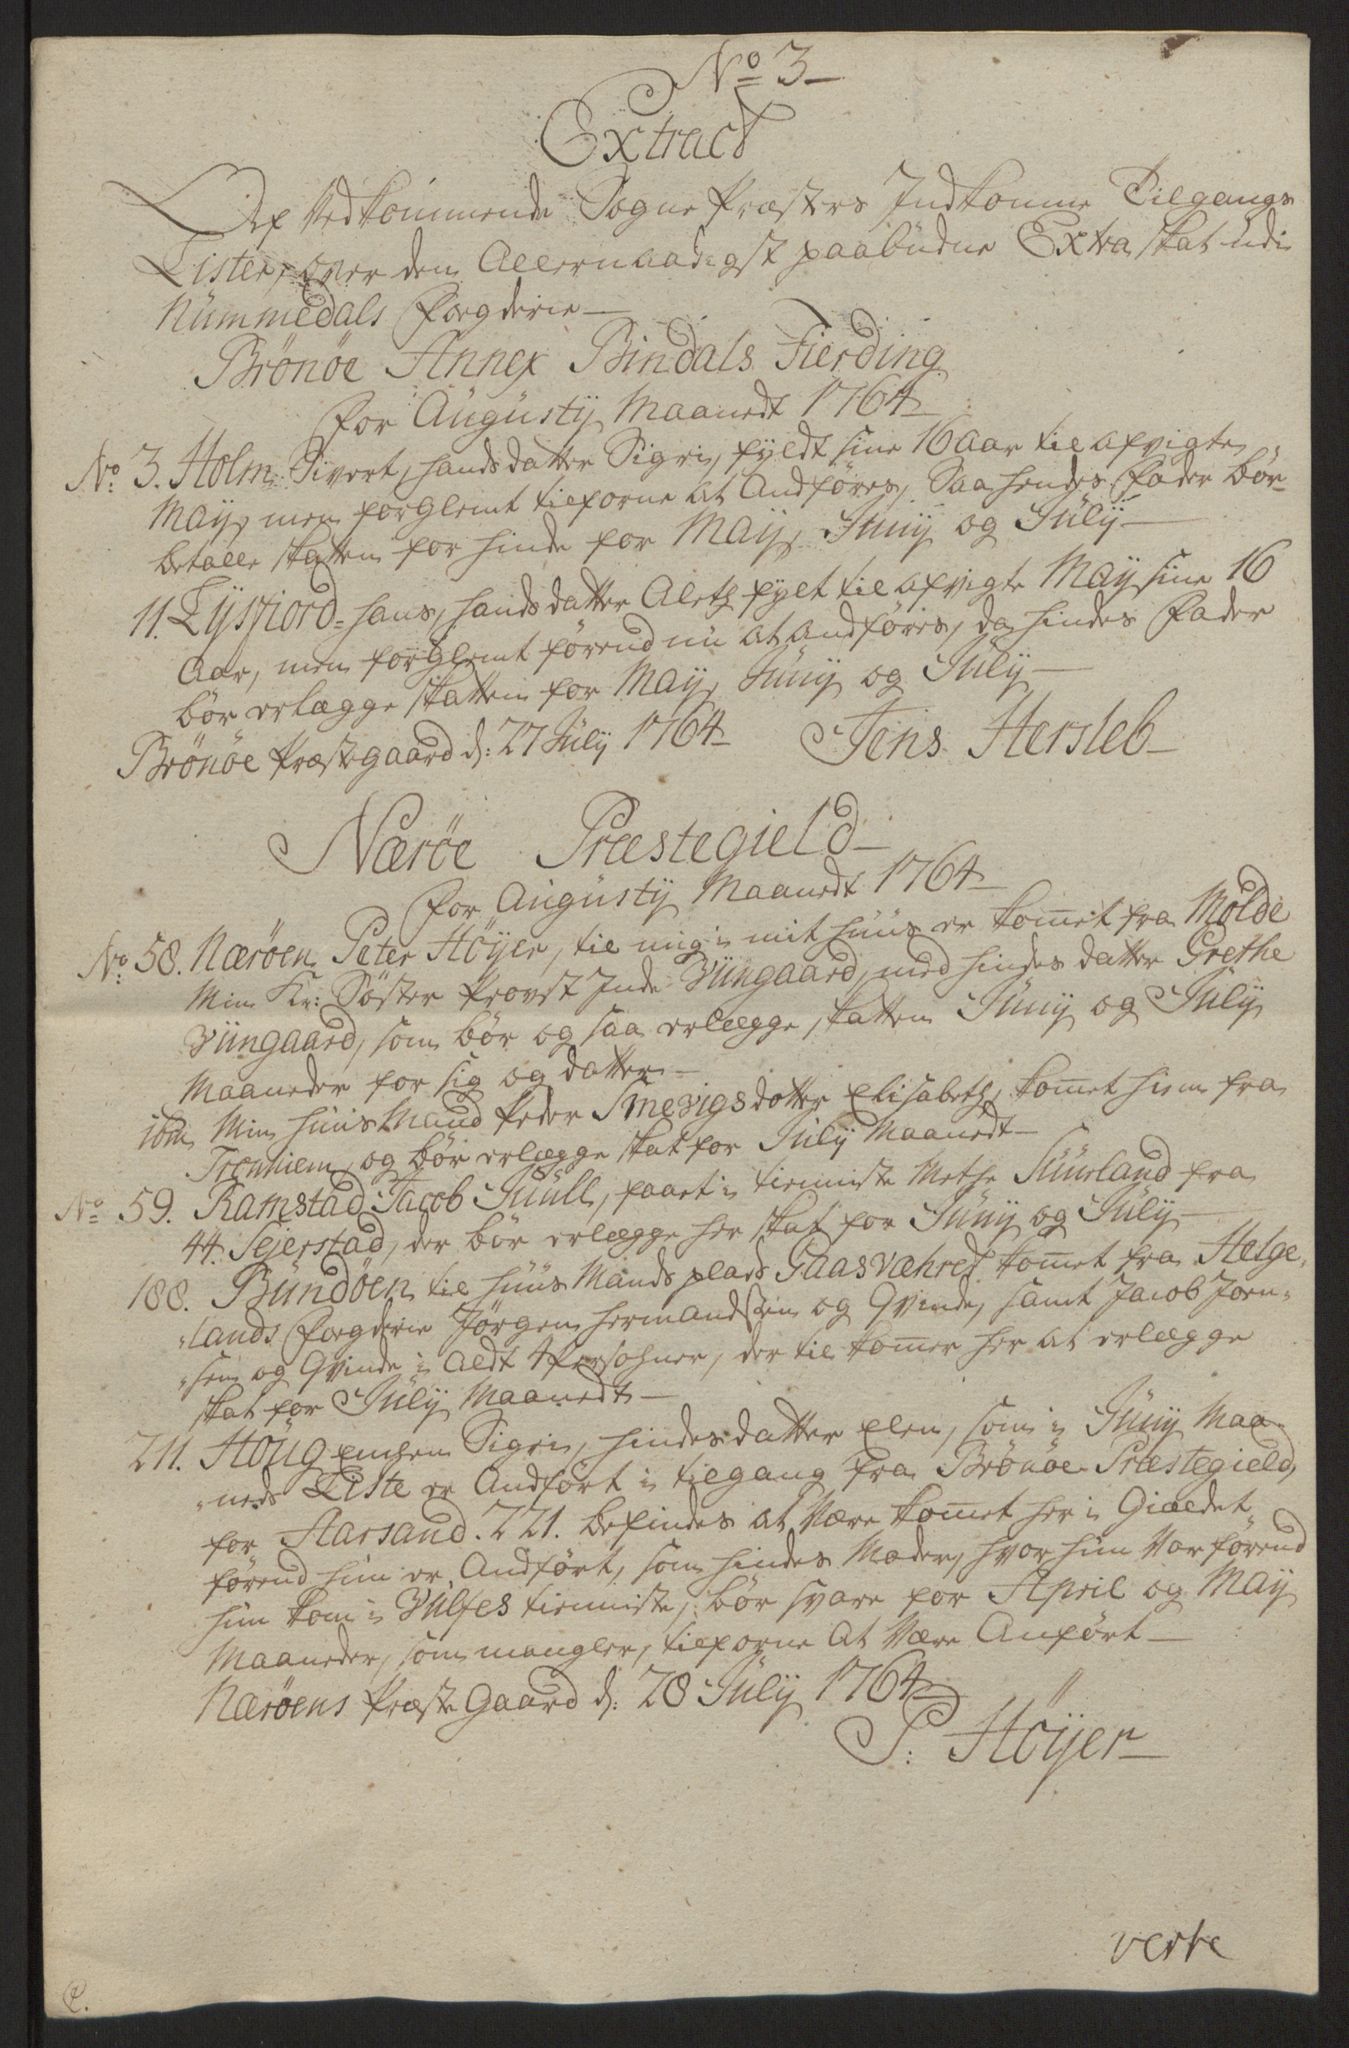 No 3
Extract
Af Vedkommende Sogne Præsters Indkomne Tilgangs
Lister, over den Allernaadigst paabudne Extra skat udi
Nummedals Fogderie
Brönöe Annex Bindals Fierding
for Augustÿ Maanedt 1764
No 3. Holm Sivert, hands datter Sigri, fÿldt sine 16 aar til afvigte
Maÿ, men forglemt tilforne at Andföres, Saa hendes Fader bör
betalle skatten for hinde for Maÿ, Junÿ og Julÿ
11. Lÿsfiord hans, hands datter Aleth fÿlt til afvigte Maÿ sine 16
Aar, men forglemt förend nu at andföres, da hindes Fader
bör erlægge skatten for Maÿ, Junÿ og Julÿ
Brönöe Præstegaard d: 27 Julÿ 1764 Jens Hersleb
Næröe Præstegield
for Augustÿ Maanedt 1764
No 58. Næröen Peter Höÿer, til mig i mit huus er komet fra Molde
Min Kr: Söster Provst Inde Büngaard, med hindes datter Grethe
Büngaard, som bör og saa erlægge skatten Junÿ og Julÿ
Maaneder for sig og datter
ibm Min huusmand Peder Smevigs dotter Elisabeth, komet hiem fra
Tronhiem, og bör erlægge skat for Julÿ Maanedt
No 59. Ramstad Jacob Juull, faaet i tienniste Methe Suurland fra
44. Sejerstad, der bör erlægge her skat for Junÿ og Julÿ
188. Bundöen til huus Mands plads Gaasvahred komet fra Helge
lands Fogderie Jörgen Hermandsen og Qvinde, samt Jacob Joen
sen og Qvinde i Aldt 4 Persohner, der til komer her at erlægge
skat for Julÿ Maanedt
211. Höug Enchen Sigri, hindes datter Elen, som i Junÿ Maa
neds Liste er Andfört i tilgang fra Brönöe Præstegield,
for Aarsand. 221. befindes at være komet her i Gieldet
förend hun er Andfört, som hindes Moder, hvor hun var förend
hun kom i Bülfes tienniste, bör svare for April og Maÿ
Maaneder, som mangler, tilforne at være Anfört
Næröens Præste Gaard d: 28 Julÿ 1764
P: Höÿer
verte